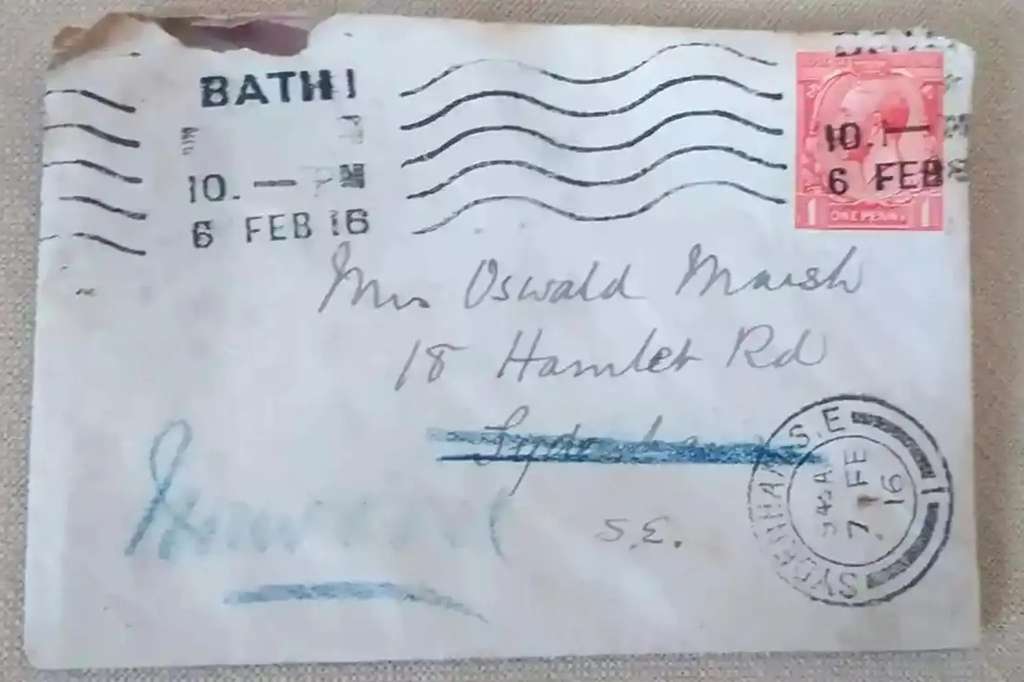 BATH 1
10. — PM
6 FEB 16
10.
6 FEB
1 ONE PENNY 1
Mrs Oswald Marsh
18 Hamlet Rd
Sydenham
S.E.
SYDENHAM S.E
7 FE
16